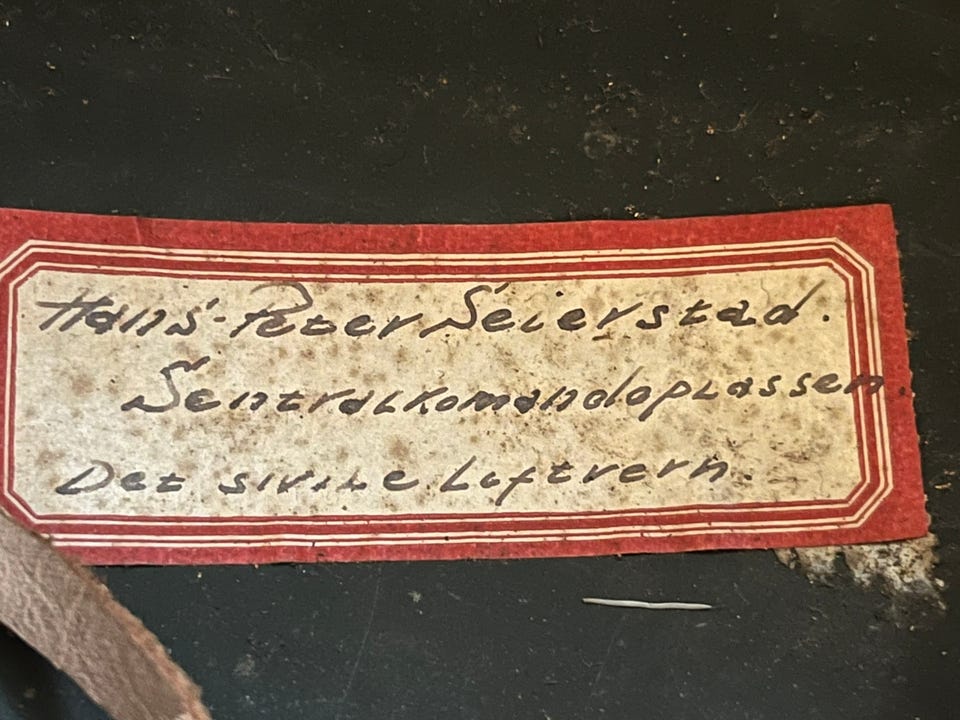 Hans-Peter Seierstad.
Sentralkomandoplassen.
Det sivile Luftvern.